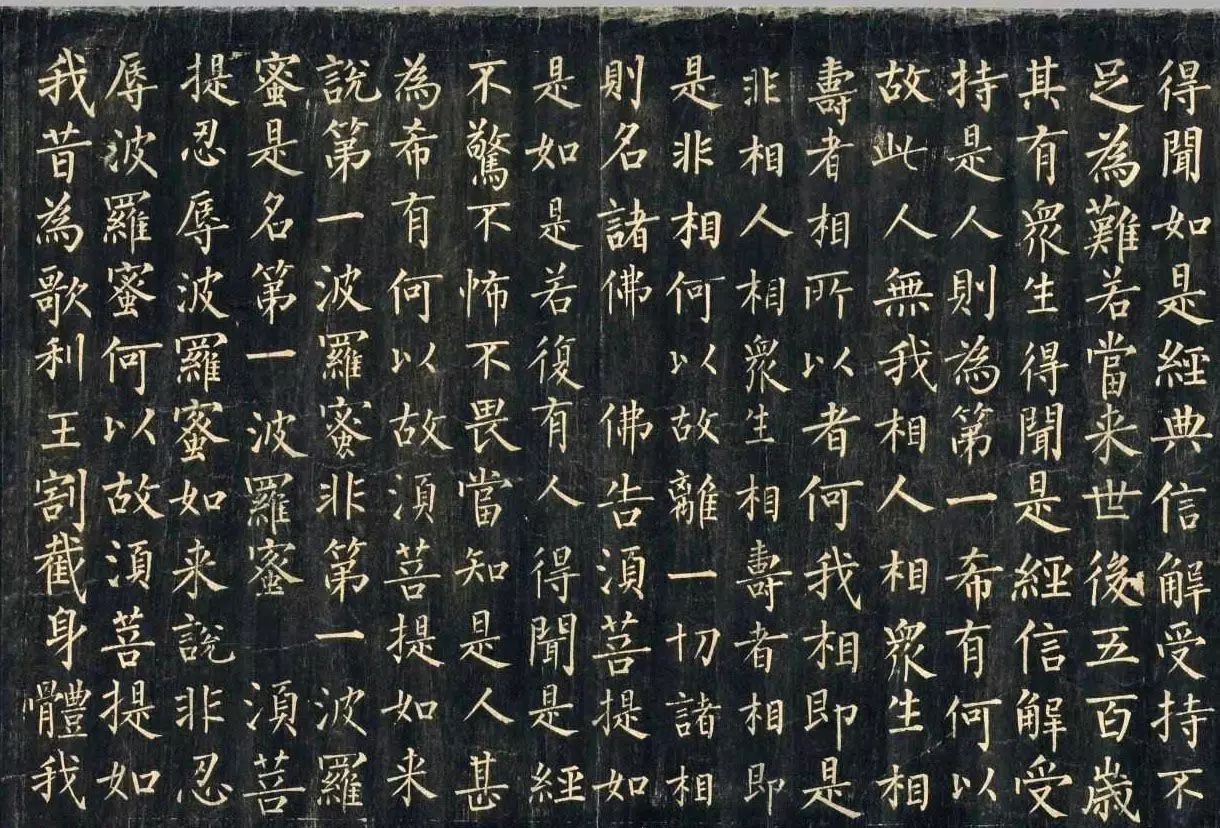 得聞如是經典信解受持不
足為難若當来世後五百歲
其有衆生得聞是經信解受
持是人則為第一希有何以
故此人無我相人相衆生相
壽者相所以者何我相即是
非相人相衆生相壽者相即
是非相何以故離一切諸相
則名諸佛 佛告湏菩提如
是如是若復有人得聞是經
不驚不怖不畏當知是人甚
為希有何以故湏菩提如来
說第一波羅蜜非第一波羅
蜜是名第一波羅蜜 湏菩
提忍辱波羅蜜如来說非忍
辱波羅蜜何以故湏菩提如
我昔為歌利王割截身體我